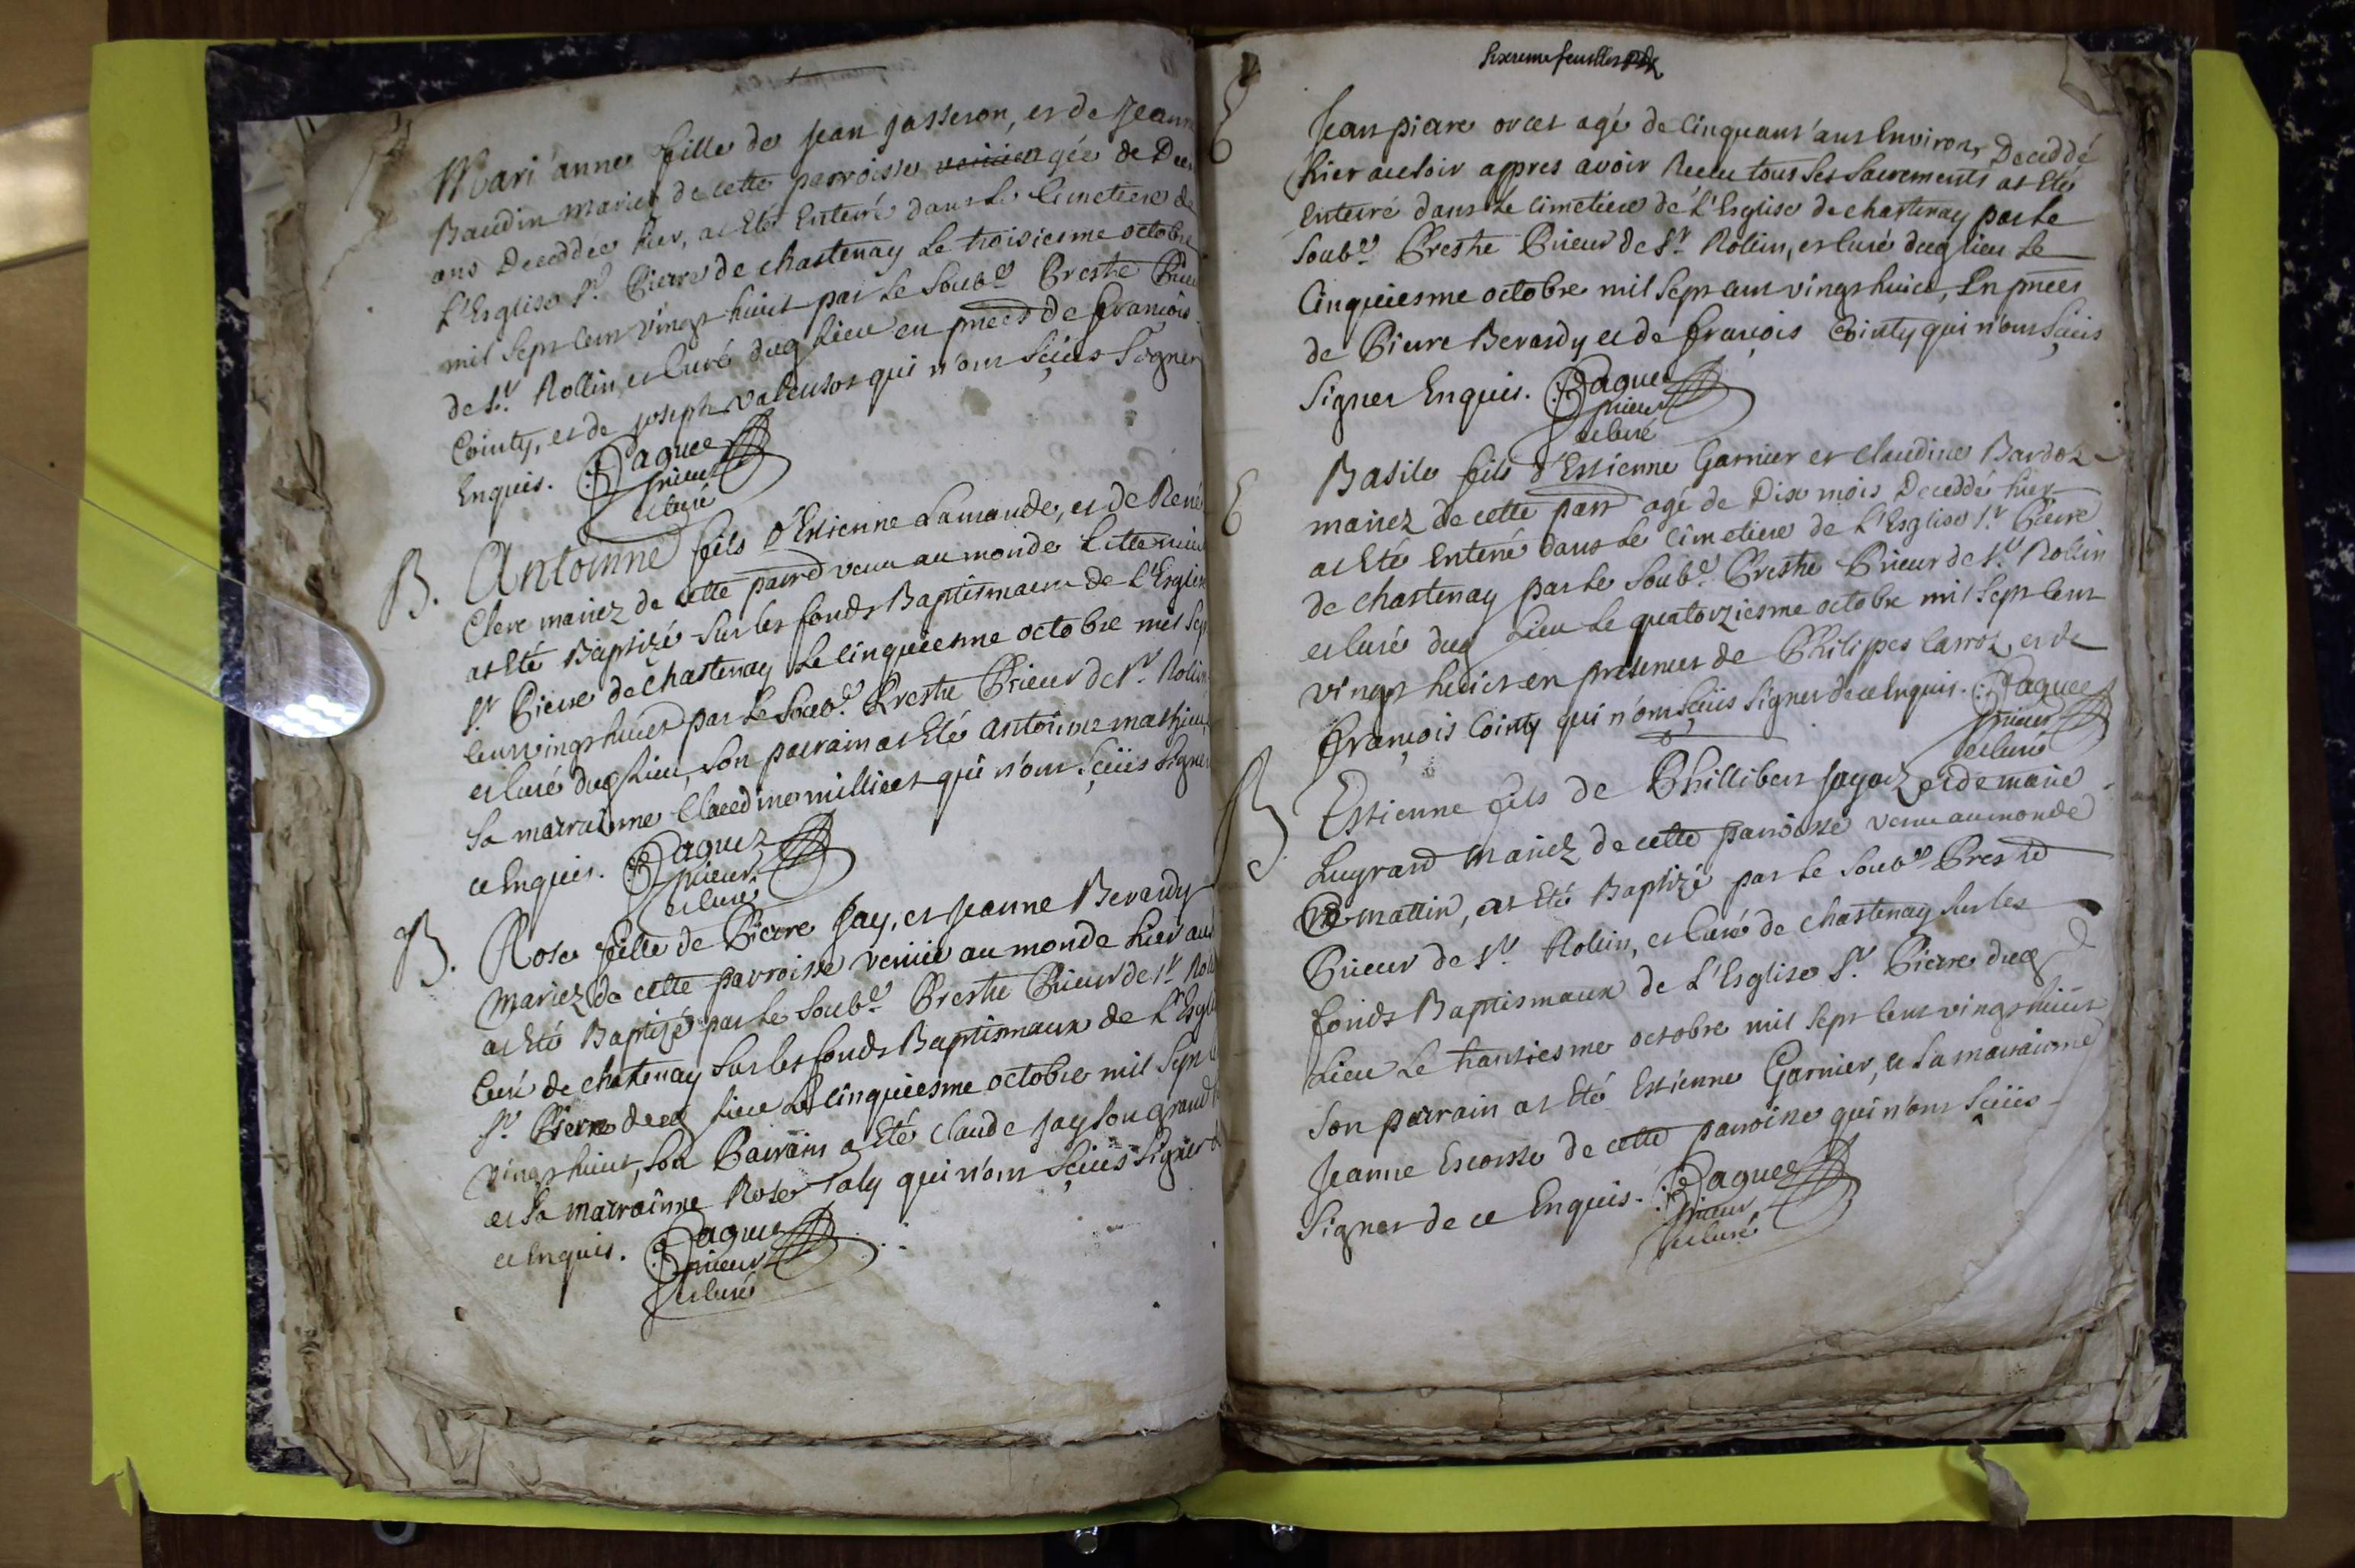 Mari anne fille de Jean Jasseron, et de Jeanne
Baudin mariez de cette parroisse agée de
ans Deceddée hier, at Eté Enterré dans Le Cimetiere de
L'Esglise St Pierre de chastenay Le troisiesme octobre
mil Sept Cent vingt huict par Le Soubé Prestre Prieur
de St Rollin, et Curé dud Lieu en pnces de françois
Cointy, et de joseph qui n'ont Sçeus Signer
Enquis. Paguez
prieur
et Curé
B. Antoinne fils d'Estienne Lamande, et de René
Clerc mariez de cette parr venu au monde
at Eté Baptizé Sur les fonds Baptismaux de L'Esglise
St Pierre de chastenay Le Cinquiesme octobre mil Sept
Cent vingt huict par Le Soubé Prestre Prieur de St Rollin
et Curé dud Lieu, Son parrain at Eté antoinne mathieu
Sa marrainne Claudine milliet qui n'ont Sçeus Signer
ce Enquis. Paguez
prieur
et Curé
B. Rose fille de Pierre Jay, et Jeanne Berardy
Mariez de cette parroisse venüe au monde hier au
at Eté Baptizé par Le Soubé Prestre Prieur de St Rollin
Curé de chastenay Sur les fonds Baptismaux de L'Esglise
St Pierre dud Lieu Le Cinquiesme octobre mil Sept
vingt huict, Son Parrain a Eté Claude Jay Son grand
et Sa marrainne Rose Taly qui n'ont Sçeus Signer
ce Enquis. Paguez
prieur
et Curé
Sixieme feuillet
E Jean piere orcet agé de Cinquant'ans Environ, Deceddé
hier au soir appres avoir Receu tous Ses Sacrements at Eté
Enterré dans Le Cimetiere de L'Esglise de chastenay par Le
Soubé Prestre Prieur de St Rollin, et Curé dud lieu Le
Cinquiesme octobre mil Sept Cent vingt huict, En pnces
de Pierre Berardy et de françois Cointy qui n'ont Sçeus
Signer Enquis. Paguez
prieur
et Curé
E Basile fils d'Estienne Garnier et Claudine Bardoz
mariez de cette parr agé de Dix mois Deceddé hier
at Eté Enterré dans Le Cimetiere de L'Esglise St Pierre
de chastenay par Le Soubé Prestre Prieur de St Rollin
et Curé dud Lieu Le quatorziesme octobre mil Sept Cent
vingt huict en presences de Philipes Carroz, et de
françois Cointy qui n'ont Sçeus Signer de ce Enquis. Paguez
prieur
et Curé
B Estienne fils de Phillibert Jayoz et de marie
Lugrand Mariez de cette parroisse venu au monde
Ce mattin, at Eté Baptizé par Le Soubé Prestre
Prieur de St Rollin, et Curé de chastenay Sur les
fonds Baptismaux de L'Esglise St Pierre dud
Lieu Le trantiesme octobre mil Sept Cent vingt huict
Son parrain at Eté Estienne Garnier, et Sa marrainne
Jeanne Escosse de cette parroisse qui n'ont Sçeus
Signer de ce Enquis. Paguez
prieur
et Curé